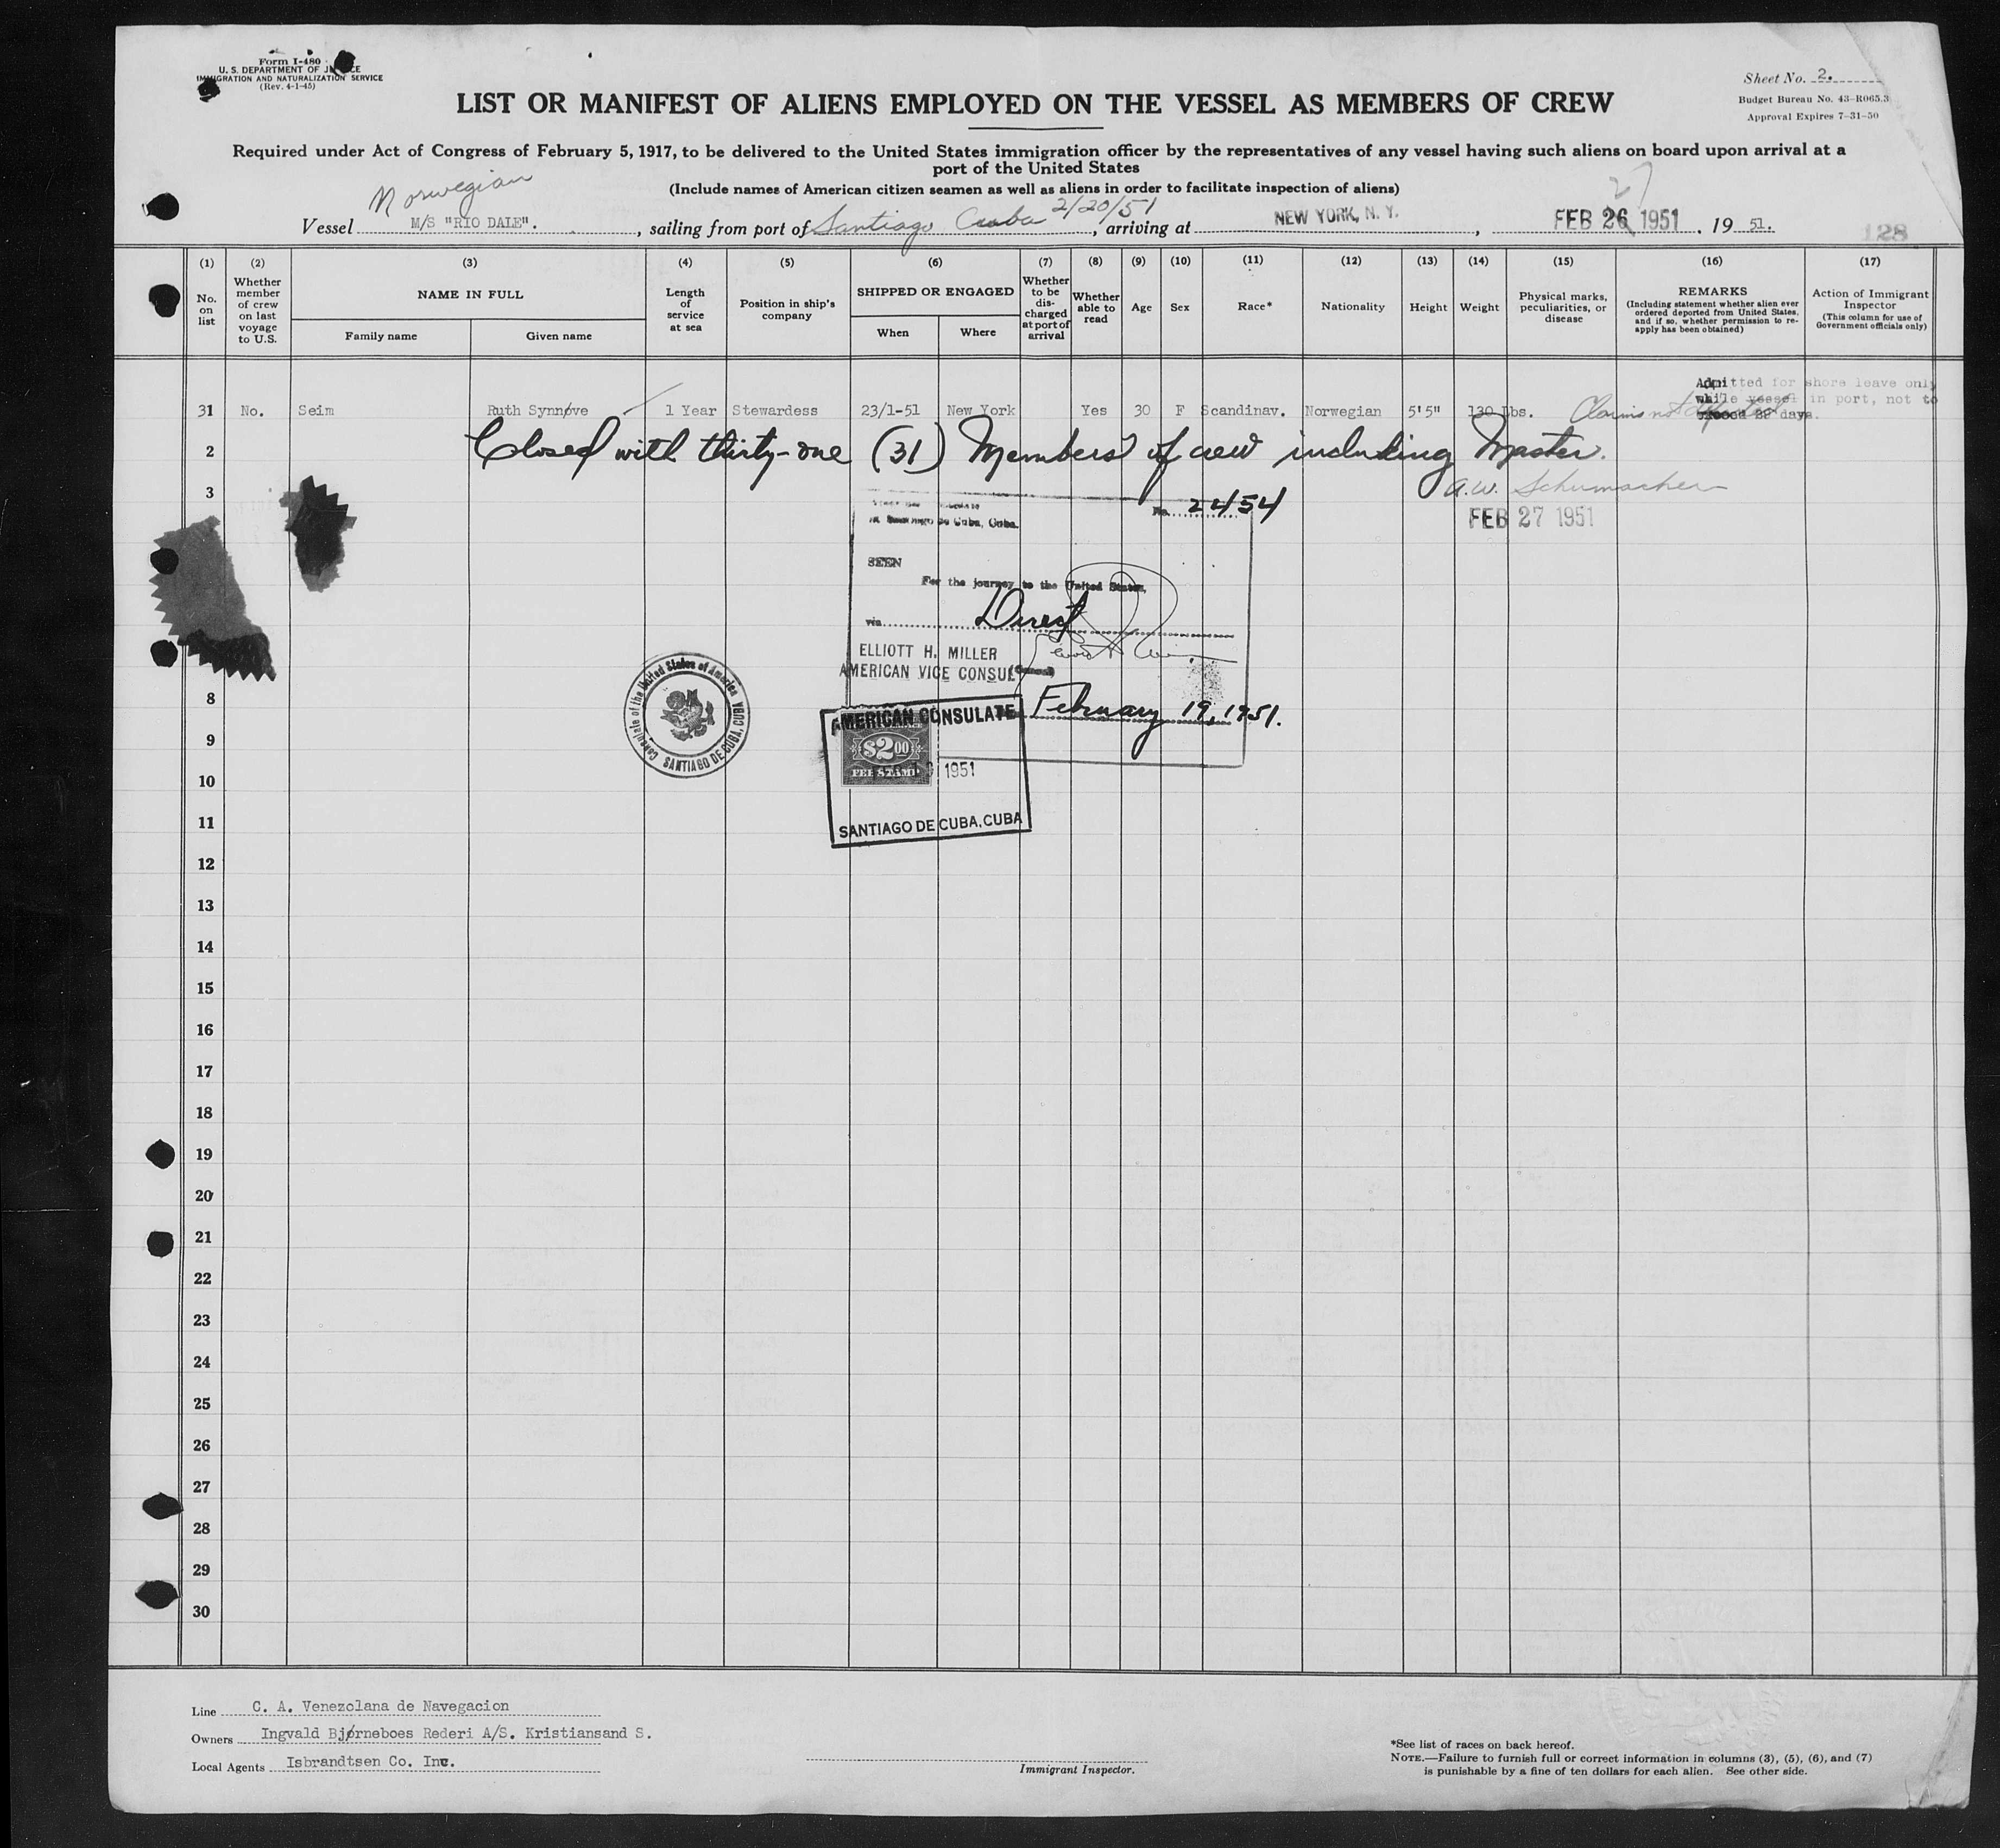 Form I-480
U. S. DEPARTMENT OF JUSTICE
IMMIGRATION AND NATURALIZATION SERVICE
(Rev. 4-1-45)
Sheet No. 2.
Budget Bureau No. 43-R065.3
Approval Expires 7-31-50
LIST OR MANIFEST OF ALIENS EMPLOYED ON THE VESSEL AS MEMBERS OF CREW
Required under Act of Congress of February 5, 1917, to be delivered to the United States immigration officer by the representatives of any vessel having such aliens on board upon arrival at a
port of the United States
(Include names of American citizen seamen as well as aliens in order to facilitate inspection of aliens)
Norwegian
27
Vessel M/S "RIO DALE". , sailing from port of Santiago Cuba 2/20/51 , arriving at NEW YORK, N. Y. , FEB 26 1951 . 19 51.
128
(1) (2) (3) (4) (5) (6) (7) (8) (9) (10) (11) (12) (13) (14) (15) (16) (17)
No. on list
Whether member of crew on last voyage to U.S.
NAME IN FULL
Family name
Given name
Length of service at sea
Position in ship's company
SHIPPED OR ENGAGED
When
Where
Whether to be discharged at port of arrival
Whether able to read
Age
Sex
Race*
Nationality
Height
Weight
Physical marks, peculiarities, or disease
REMARKS
(Including statement whether alien ever ordered deported from United States, and if so, whether permission to re-apply has been obtained)
Action of Immigrant Inspector
(This column for use of Government officials only)
Admitted for shore leave only
while vessel in port, not to
exceed 29 days.
31 No. Seim Ruth Synnøve 1 Year Stewardess 23/1-51 New York Yes 30 F Scandinav. Norwegian 5'5" 130 lbs. Claims not
2 Closed with thirty-one (31) Members of crew including Master.
3 A.W. Schumacher
FEB 27 1951
No. 2454
At Santiago de Cuba, Cuba.
SEEN
For the journey to the United States,
via Direct
ELLIOTT H. MILLER
AMERICAN VICE CONSUL
February 19, 1951.
Consulate of the United States of America
SANTIAGO DE CUBA, CUBA
AMERICAN CONSULATE
$2.00
FEE STAMP
1951
SANTIAGO DE CUBA, CUBA
8
9
10
11
12
13
14
15
16
17
18
19
20
21
22
23
24
25
26
27
28
29
30
Line C. A. Venezolana de Navegacion
Owners Ingvald Bjørneboes Rederi A/S. Kristiansand S.
Local Agents Isbrandtsen Co. Inc.
Immigrant Inspector.
*See list of races on back hereof.
NOTE.—Failure to furnish full or correct information in columns (3), (5), (6), and (7)
is punishable by a fine of ten dollars for each alien. See other side.